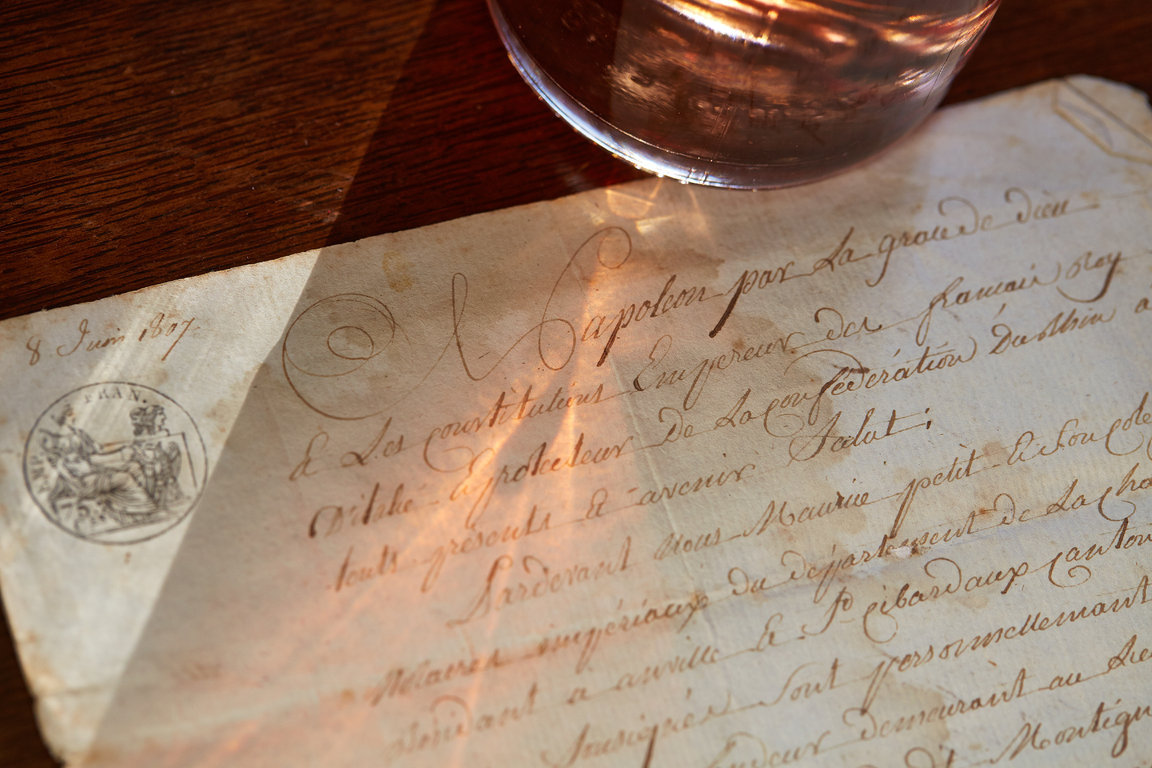 8 Juin 1807
FRAN.
Napoleon par La grace de dieu
& Les constitutions Empereur des francais Roy
D'italie & protecteur de La confédération Du Rhin a
touts presents & avenir Salut;
Pardevant nous Maurice petit & Son cole
Notaires impériaux du département de La cha
Résidant a anville & St. cibardaux canton
Sousignés Sont personnellemant
demeurant au Lie
Montign